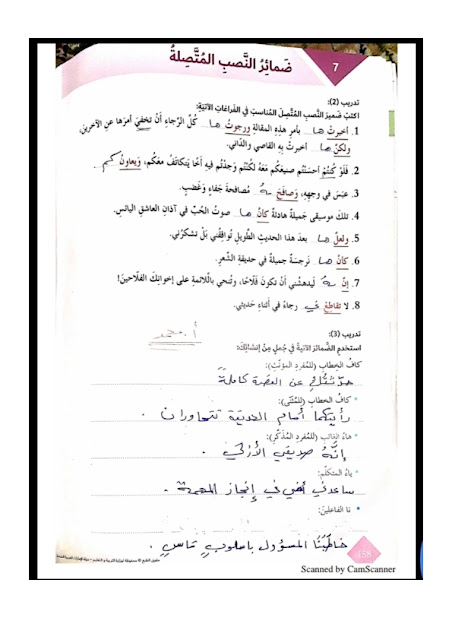 7
ضمائرُ النَّصبِ المُتَّصلةُ
تدريب (2):
اكتبْ ضميرَ النَّصبِ المُتَّصلَ المُناسبَ في الفَراغاتِ الآتيَةِ:
1. أخبرتُ ها بأمرِ هذِهِ المقالةِ ورجوتُ ها كُلَّ الرَّجاءِ أنْ تخفيَ أمرَها عنِ الآخرين،
ولكنْ ها أخبرتْ بِهِ القاصي والدَّاني.
2. فَلَوْ كُنتُمْ أحسَنْتُم صنيعَكُم مَعَهُ لكُنْتُم وَجَدْتُم فيهِ أخًا يَتكاتَفُ معَكُم، وَيعاونُ كم
3. عبَسَ في وجهِهِ، وَصَافَحَ ـه مُصافحةَ جَفاءٍ وَغَضبٍ.
4. تلكَ موسيقى جَميلةٌ هادئةٌ كَأنَّ ها صوتُ الحُبِّ في آذانِ العاشقِ اليائسِ.
5. ولعلَّ ها بعدَ هذا الحديثِ الطَّويلِ تُوافِقُني بَلْ تشكرُني.
6. كأنَّ ها نرجسةٌ جميلةٌ في حديقةِ الشِّعرِ.
7. إنَّ ـه لَيدهشُني أنْ تكونَ فَلَّاحًا، وتُنحي باللَّائمةِ على إخوانِكَ الفلَّاحين!
8. لا تقاطعْ ني رجاءً في أثناءِ حَديثي.
تدريب (3):
استخدمِ الضَّمائرَ الآتيةَ في جُملٍ مِنْ إنشائِكَ:
كافُ الخِطابِ (للمُفردِ المؤنَّثِ):
عن القصة كاملة
كافُ الخطابِ (للمُثنَّى):
رأيتكما أمام الحديقة تتحاوران .
هاءُ الغائبِ (للمُفردِ المُذكَّرِ):
إنَّهُ صديقي الأزلي .
ياءُ المتكلِّمِ:
ساعدني أخي في إنجاز المهمة .
نا الفاعلينَ:
خاطبَنا المسؤول بأسلوبٍ
158
Scanned by CamScanner